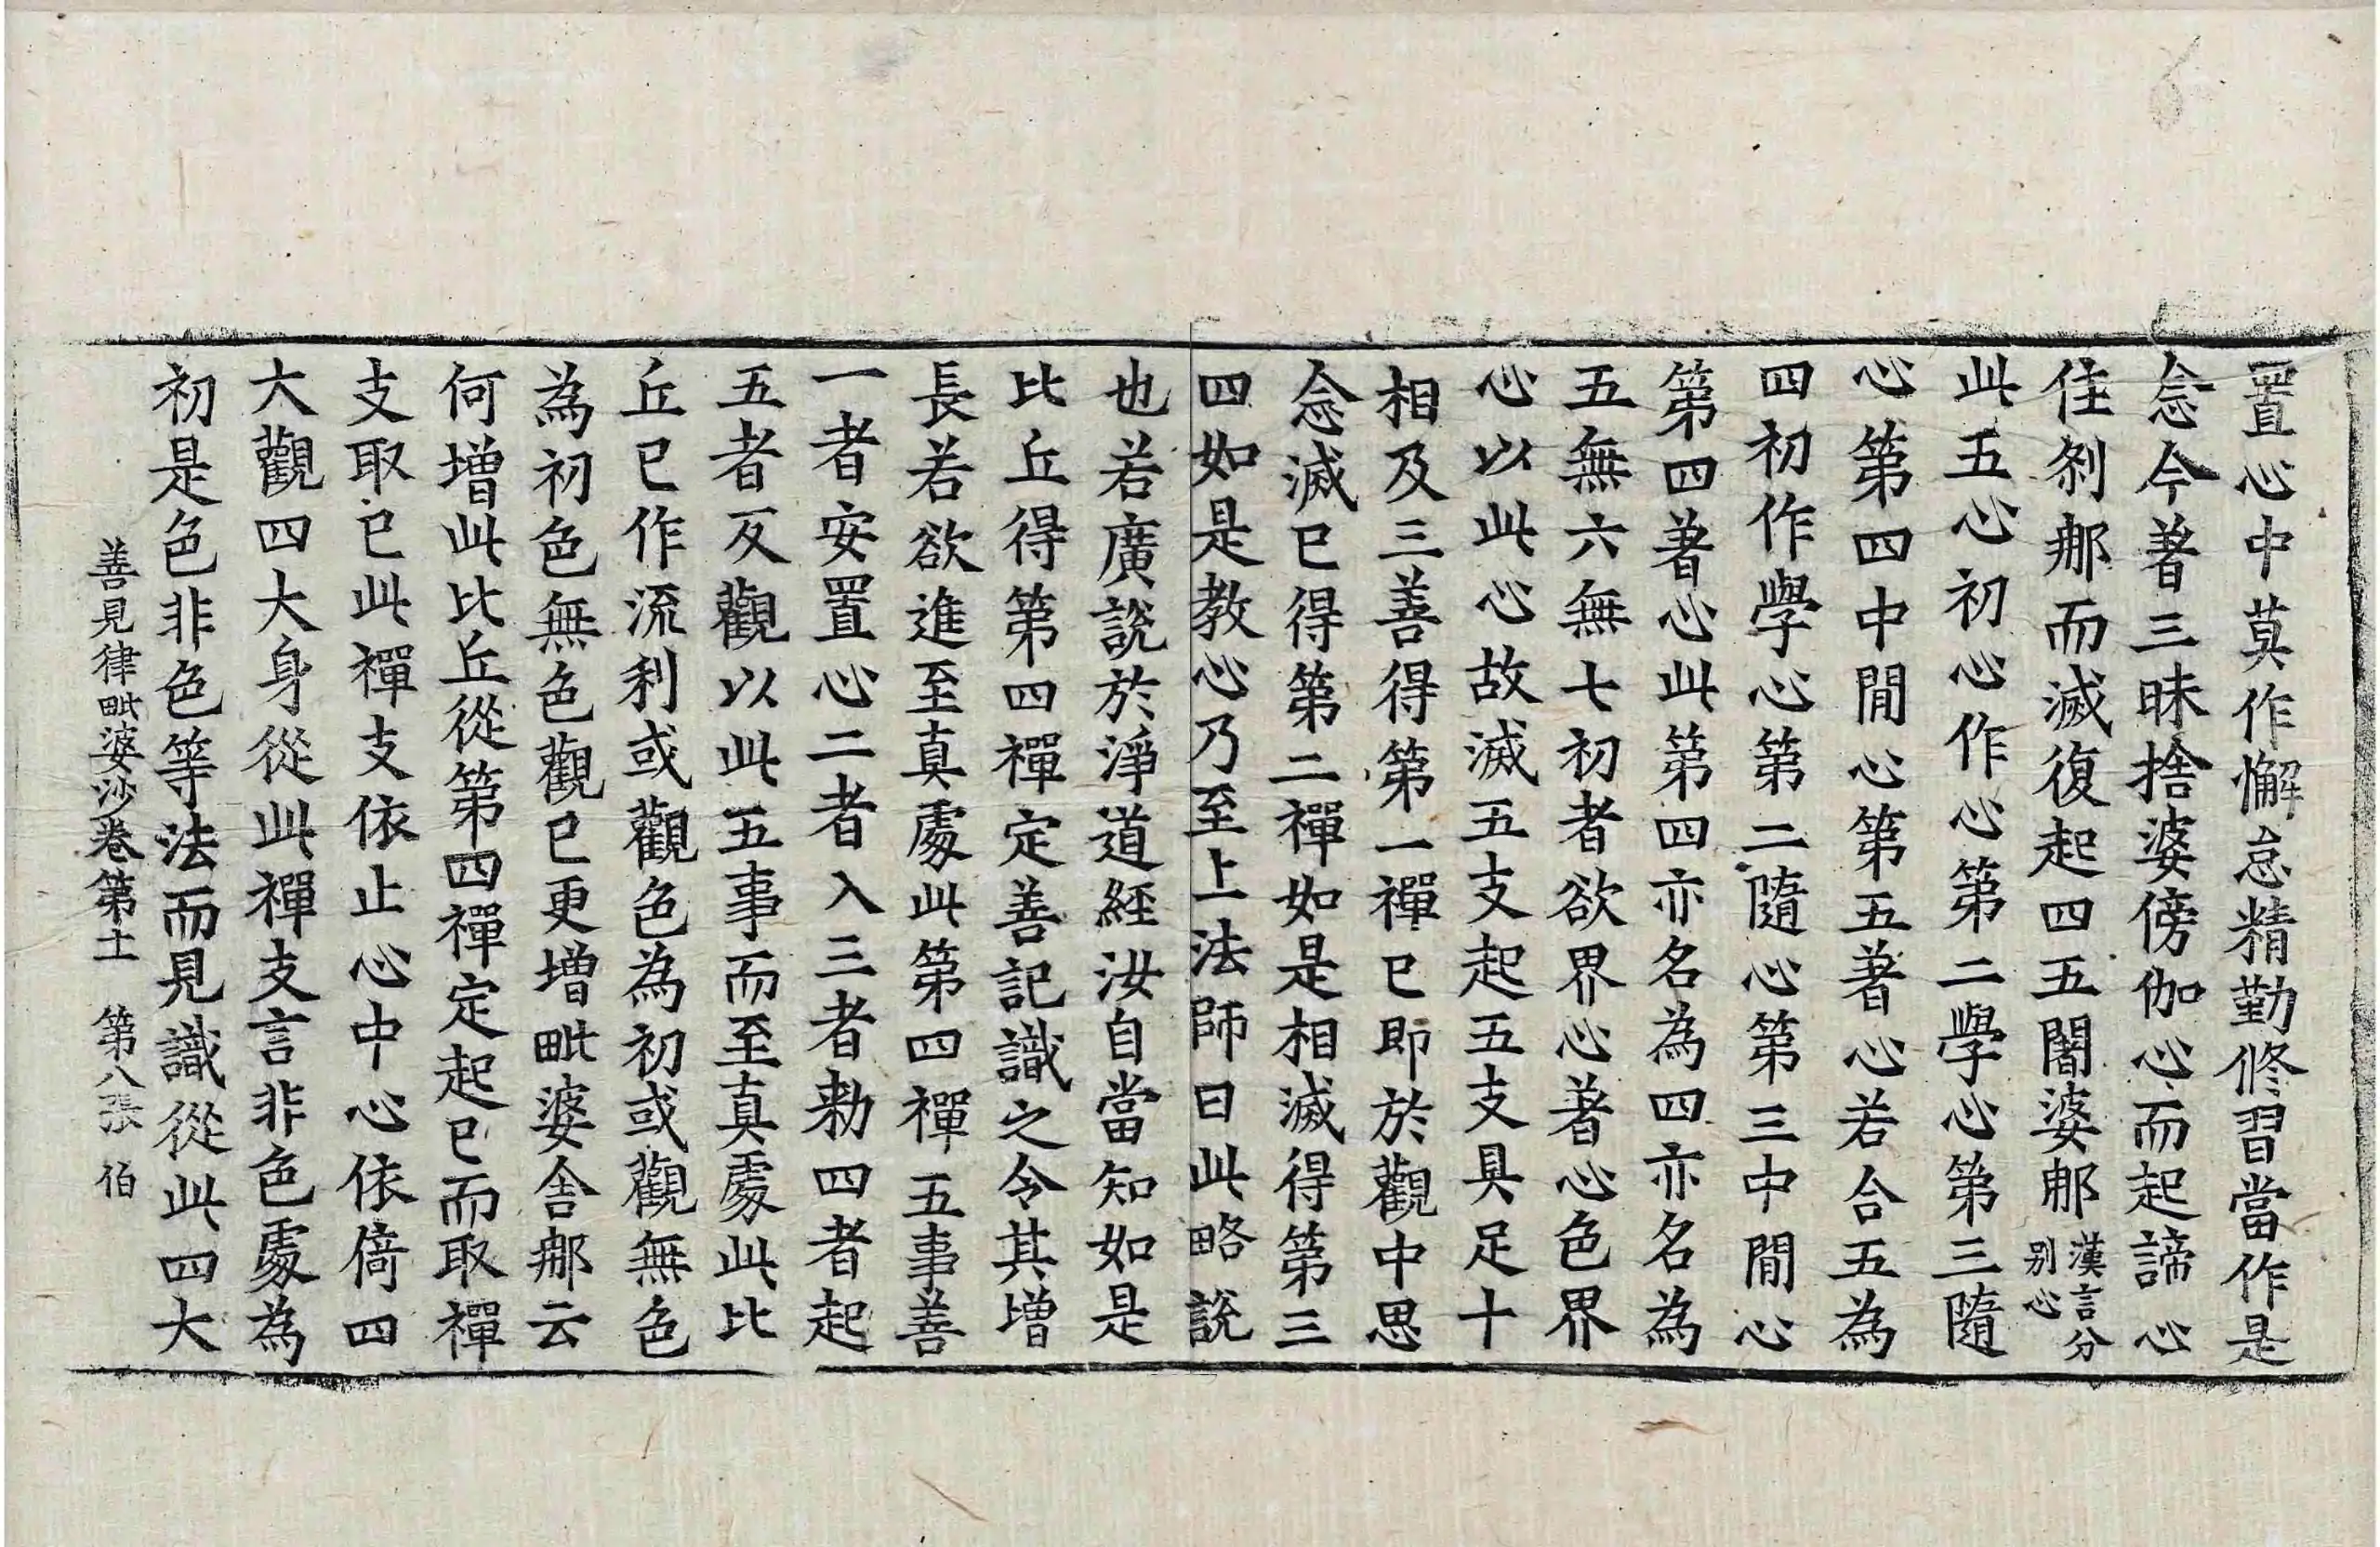 置心中莫作懈怠精勤修習當作是
念今著三昧捨婆傍伽心而起諦心
住刹那而滅復起四五闍婆那漢言分別心
此五心初心作心第二學心第三隨
心第四中間心第五著心若合五為
四初作學心第二隨心第三中間心
第四著心此第四亦名為四亦名為
五無六無七初者欲界心著心色界
心以此心故滅五支起五支具足十
相及三善得第一禪已即於觀中思
念滅已得第二禪如是相滅得第三
四如是教心乃至上法師曰此略說
也若廣說於淨道經汝自當知如是
比丘得第四禪定善記識之令其增
長若欲進至真處此第四禪五事善
一者安置心二者入三者勑四者起
五者反觀以此五事而至真處此比
丘已作流利或觀色為初或觀無色
為初色無色觀已更增毗婆舍那云
何增此比丘從第四禪定起已而取禪
支取已此禪支依止心中心依倚四
大觀四大身從此禪支言非色處為
初是色非色等法而見識從此四大
善見律毗婆沙卷第十一　第八張　伯